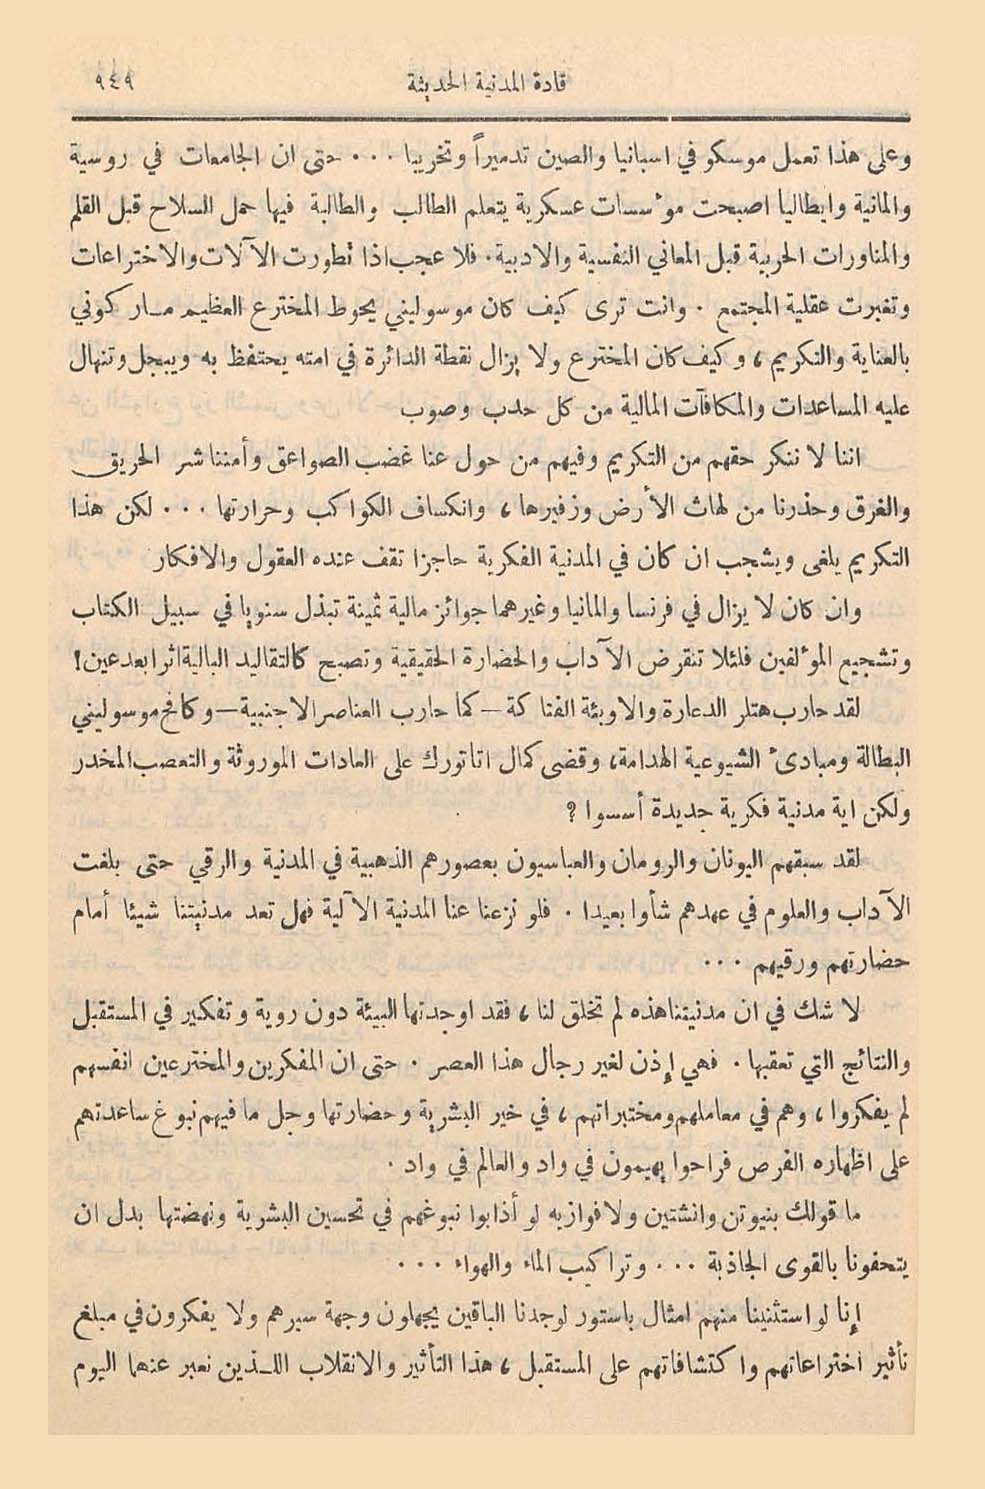 قادة المدنية الحديثة ٩٤٩
وعلى هذا تعمل موسكو في اسبانيا والصين تدميراً وتخريبا ... حتى ان الجامعات في روسية
والمانية وايطاليا اصبحت موءسسات عسكرية يتعلم الطالب والطالبة فيها حمل السلاح قبل القلم
والمناورات الحربية قبل المعاني النفسية والادبية. فلا عجب اذا تطورت الآلات والاختراعات
وتغيرت عقلية المجتمع . وانت ترى كيف كان موسوليني يحوط المخترع العظيم مـار كوني
بالعناية والتكريم ، وكيف كان المخترع ولا يزال نقطة الدائرة في امته يحتفظ به ويبجل وتنهال
عليه المساعدات والمكافآت المالية من كل حدب وصوب
اننا لا ننكر حقهم من التكريم وفيهم من حول عنا غضب الصواعق وأمننا شر الحريق
والغرق وحذرنا من لهاث الأرض وزفيرها ، وانكساف الكواكب وحرارتها ... لكن هذا
التكريم يلغى ويشجب ان كان في المدنية الفكرية حاجزا تقف عنده العقول والافكار
وان كان لا يزال في فرنسا والمانيا وغيرهما جوائز مالية ثمينة تبذل سنويا في سبيل الكتاب
وتشجيع الموءلفين فلئلا تنقرض الآداب والحضارة الحقيقية وتصبح كالتقاليد البالية اثرا بعد عين!
لقد حارب هتلر الدعارة والاوبئة الفتاكة - كما حارب العناصر الاجنبية - وكافح موسوليني
البطالة ومبادىء الشيوعية الهدامة، وقضى كمال اتاتورك على العادات الموروثة والتعصب المخدر
ولكن اية مدنية فكرية جديدة أسسوا ؟
لقد سبقهم اليونان والرومان والعباسيون بعصورهم الذهبية في المدنية والرقي حتى بلغت
الآداب والعلوم في عهدهم شأوا بعيدا . فلو نزعنا عنا المدنية الآلية فهل تعد مدنيتنا شيئا أمام
حضارتهم ورقيهم ...
لا شك في ان مدنيتنا هذه لم تخلق لنا ، فقد اوجدتها البيئة دون روية وتفكير في المستقبل
والنتائج التي تعقبها . فهي إذن لغير رجال هذا العصر . حتى ان المفكرين والمخترعين انفسهم
لم يفكروا ، وهم في معاملهم ومختبراتهم ، في خير البشرية وحضارتها وجل ما فيهم نبوغ ساعدتهم
على اظهاره الفرص فراحوا يهيمون في واد والعالم في واد .
ما قولك بنيوتن وانشتين ولافوازيه لو أذابوا نبوغهم في تحسين البشرية ونهضتها بدل ان
يتحفونا بالقوى الجاذبة ... وتراكيب الماء والهواء ...
إنا لو استثنينا منهم امثال باستور لوجدنا الباقين يجهلون وجهة سيرهم ولا يفكرون في مبلغ
تأثير اختراعاتهم واكتشافاتهم على المستقبل ، هذا التأثير والانقلاب اللـذين نعبر عنهما اليوم